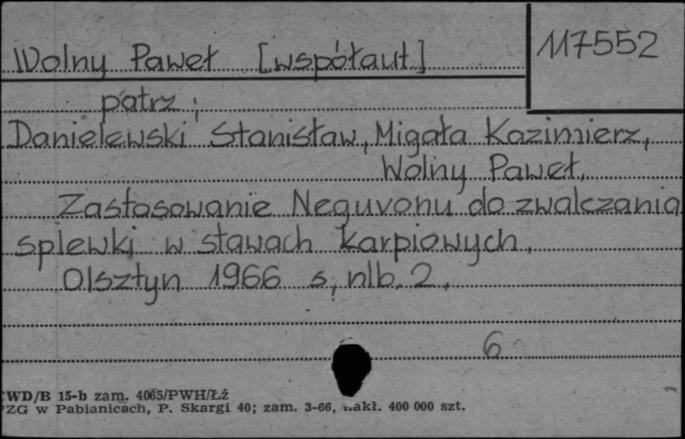 Wolny Paweł [współaut.]
117552
patrz:
Danielewski Stanisław, Migała Kazimierz,
Wolny Paweł,
Zastosowanie Neguvonu do zwalczania
splewki w stawach karpiowych,
Olsztyn 1966 s, nlb. 2,
6
WD/B 15-b zam. 4065/PWH/Łź
PZG w Pabianicach, P. Skargi 40; zam. 3-66, nakł. 400 000 szt.